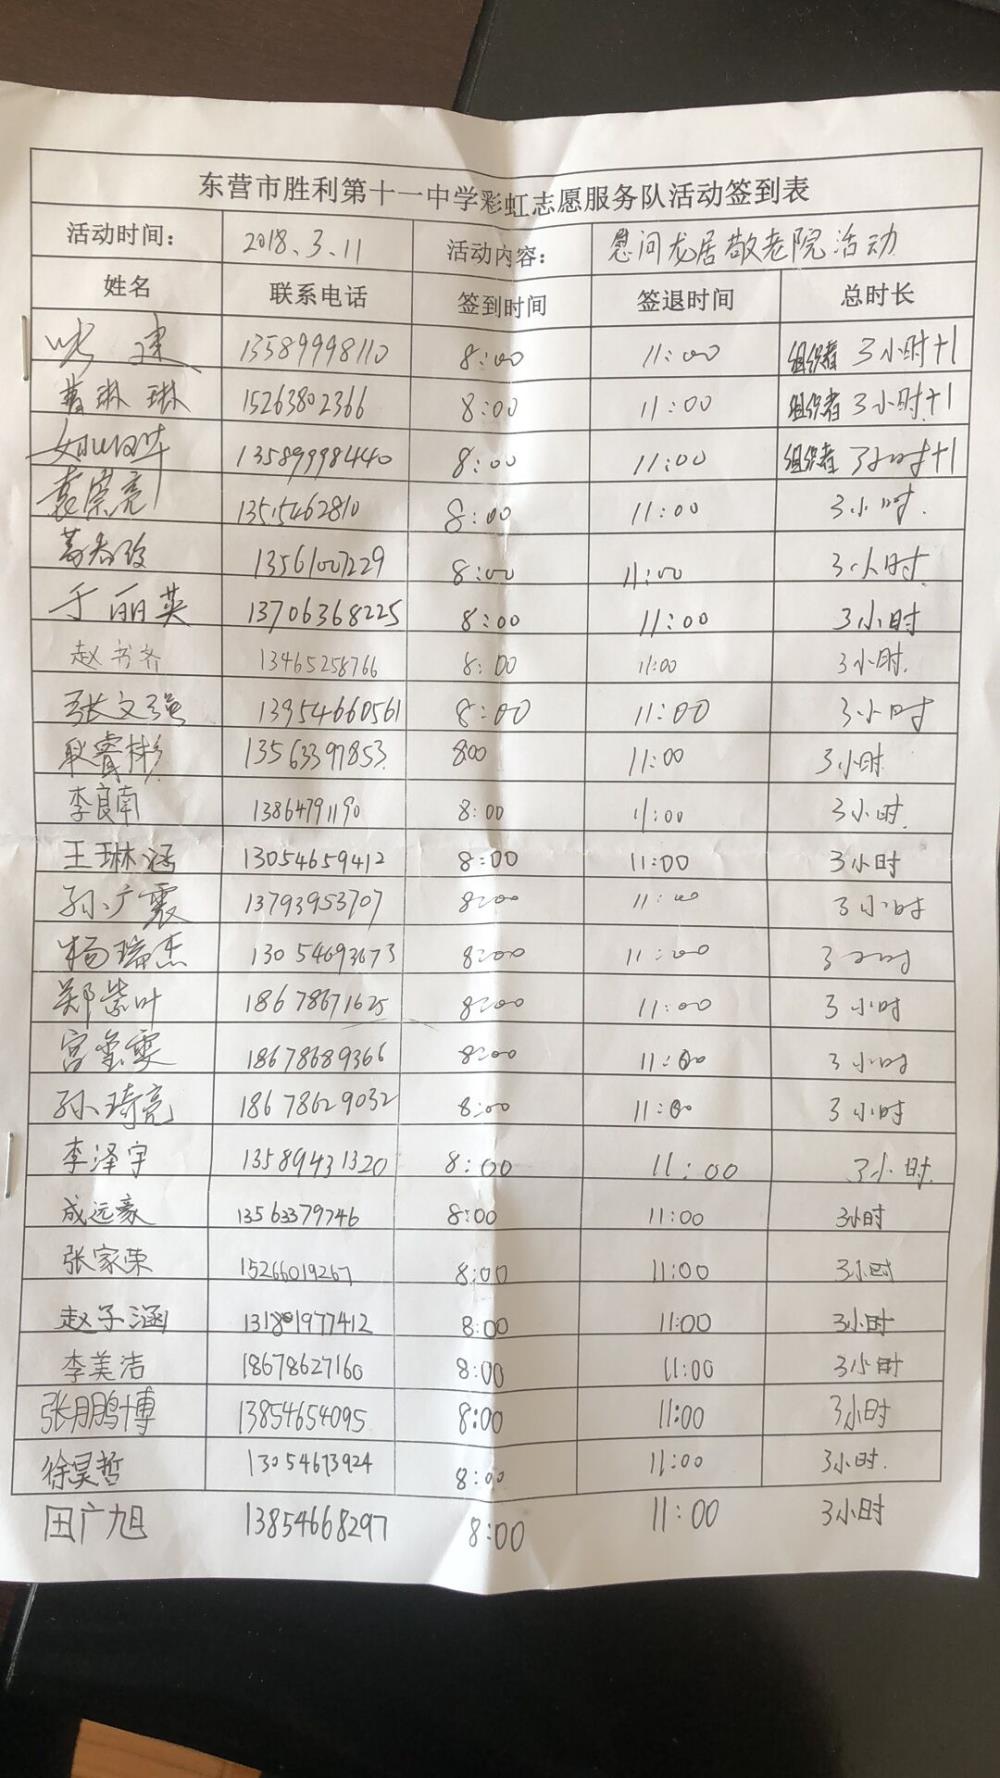 东营市胜利第十一中学彩虹志愿服务队活动签到表
活动时间： 2018.3.11 活动内容： 慰问龙居敬老院活动
姓名 联系电话 签到时间 签退时间 总时长
13589998110 8:00 11:00 组织者 3小时+1
琳琳 15263802366 8:00 11:00 组织者 3小时+1
13589998440 8:00 11:00 组织者 3小时+1
袁荣亮 13515462810 8:00 11:00 3小时.
13561007229 8:00 11:00 3小时.
于丽英 13706368225 8:00 11:00 3小时
赵书齐 13465258766 8:00 11:00 3小时.
张文强 13954660561 8:00 11:00 3小时
耿睿彬 13563397853 8:00 11:00 3小时
李良南 13864791190 8:00 11:00 3小时.
王琳涵 13054659412 8:00 11:00 3小时
孙广震 13793953707 8:00 11:00 3小时
杨瑞杰 13054693673 8:00 11:00 3小时
郑紫叶 18678671625 8:00 11:00 3小时
宫玺雯 18678689366 8:00 11:00 3小时
孙琦亮 18678629032 8:00 11:00 3小时
李泽宇 13589431320 8:00 11:00 3小时.
成远豪 13563379746 8:00 11:00 3小时
张家荣 15266019267 8:00 11:00 3小时
赵子涵 13181977412 8:00 11:00 3小时
李美洁 18678627160 8:00 11:00 3小时
张鹏博 13854654095 8:00 11:00 3小时
徐昊哲 13054673924 8:00 11:00 3小时.
田广旭 13854668297 8:00 11:00 3小时